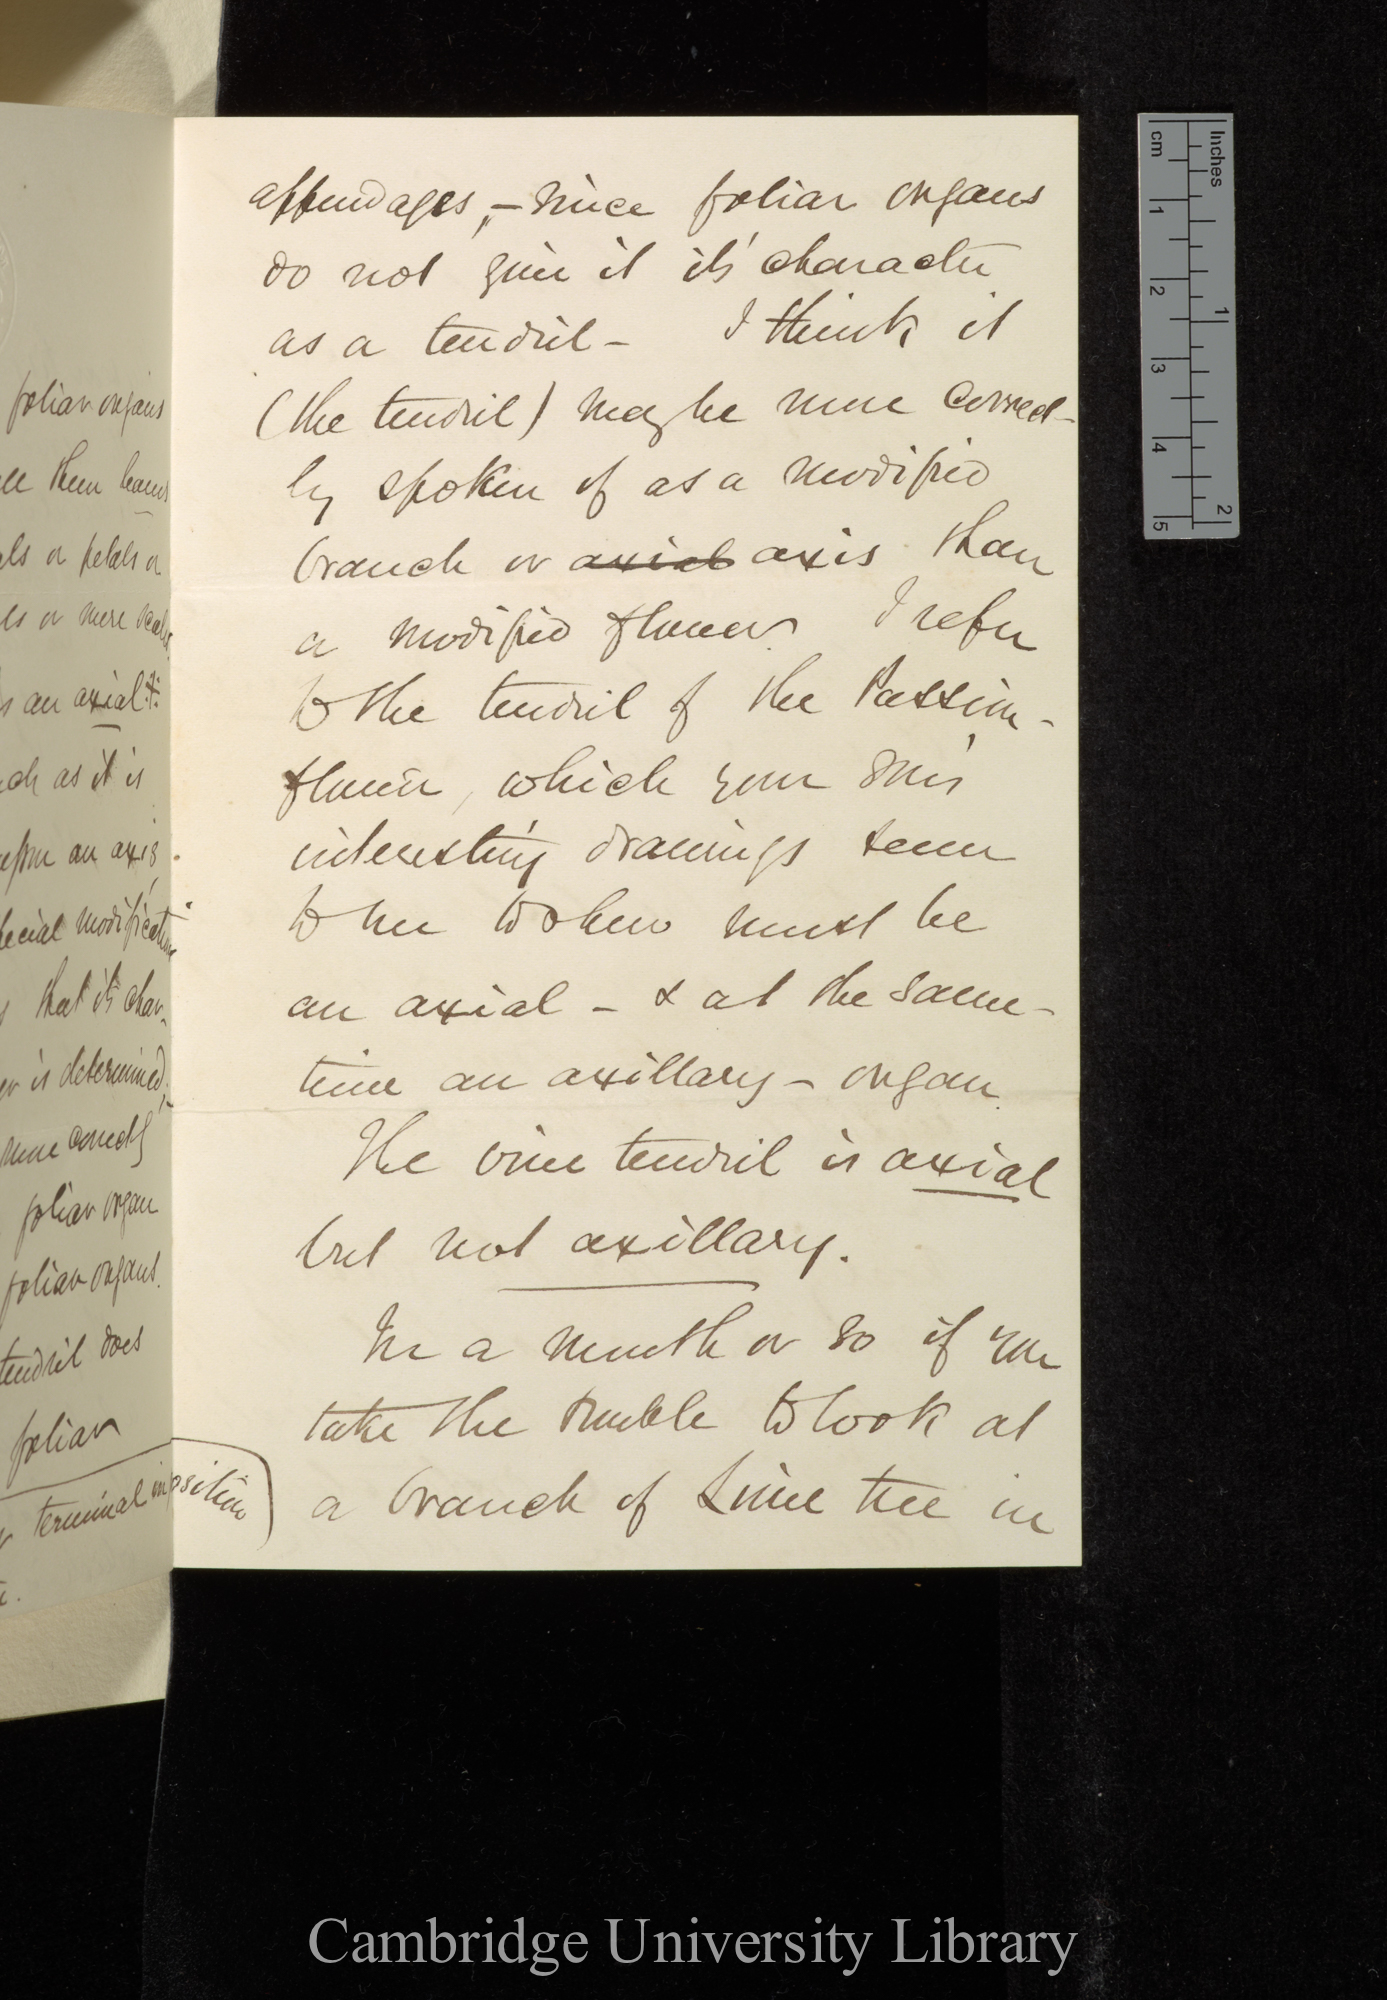 foliar organs
them leaves
or petals or
or mere scales
an axial
as it is
an axis
modification
that its char-
is determined,
more correctly
foliar organ
foliar organs.
tendril does
foliar
or terminal in position
appendages,— since foliar organs
do not give it its' character
as a tendril— I think it
(the tendril) may be more correct-
ly spoken of as a modified
branch or axial axis than
a modified flower. I refer
to the tendril of the Passion-
flower, which your son's
interesting drawings seem
to me to shew must be
an axial — & at the same-
time an axillary — organ.
The vine tendril is axial
but not axillary.
In a month or so if you
take the trouble to look at
a branch of Lime tree in
cm
1
2
3
4
5
Inches
1
2
Cambridge University Library